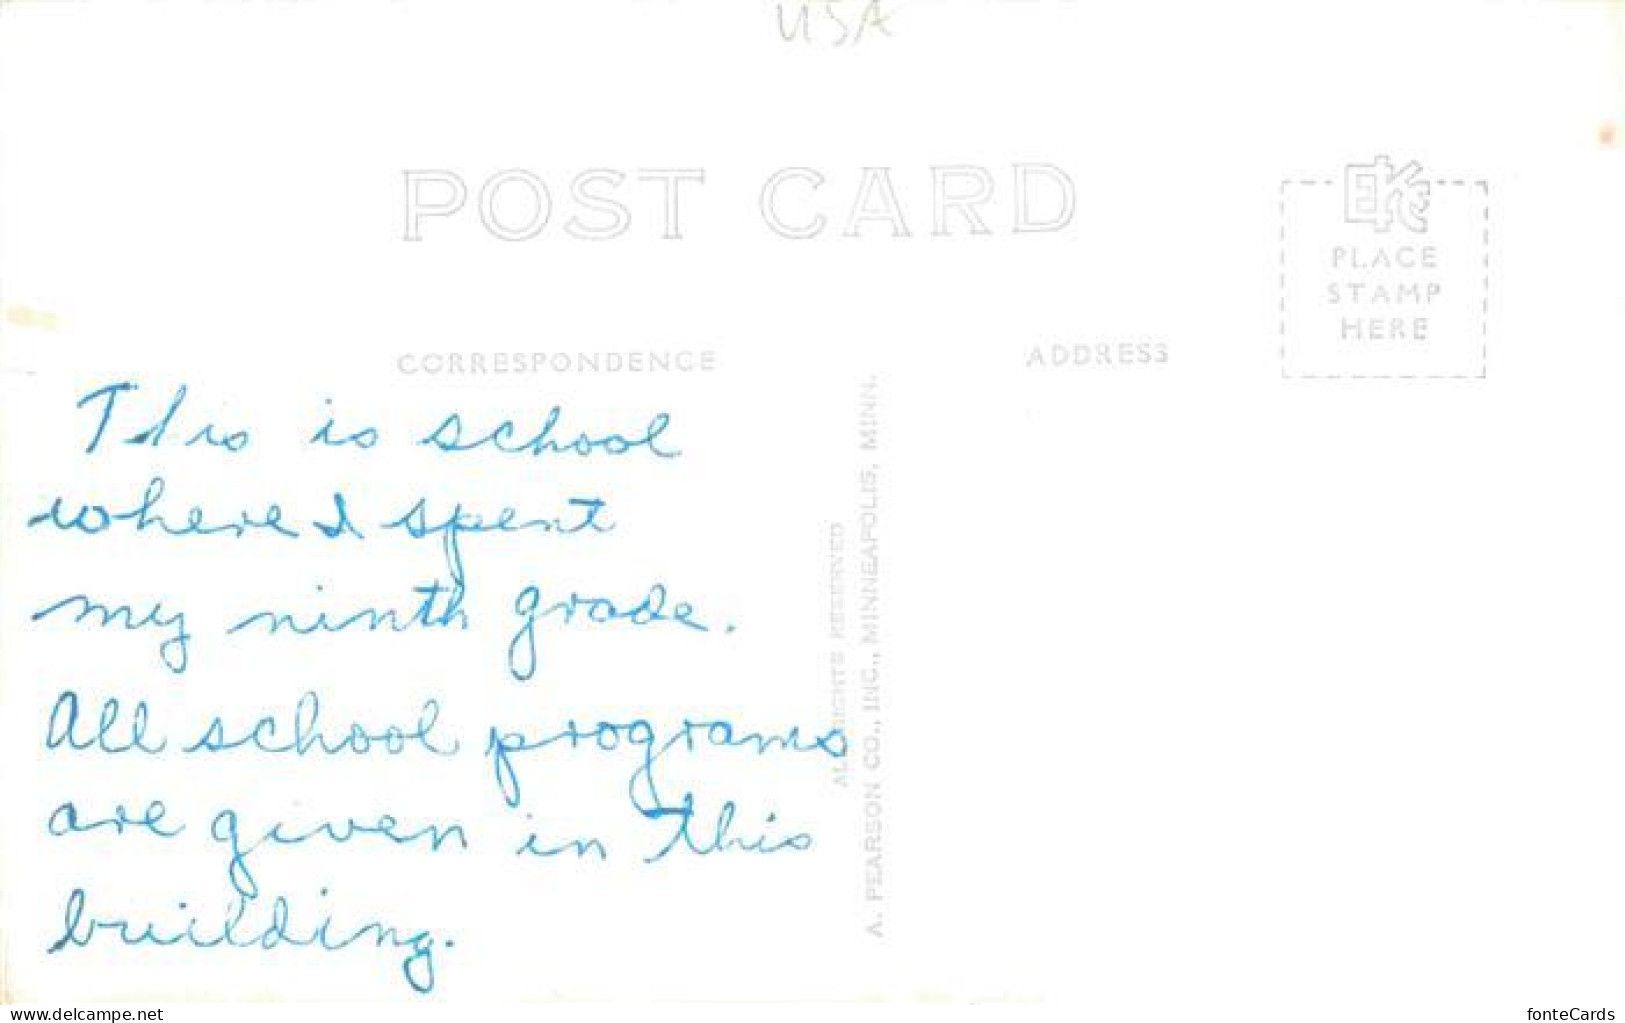 USA
POST CARD
EK
PLACE
STAMP
HERE
CORRESPONDENCE
ADDRESS
This is school
where I spent
my ninth grade.
All school programs
are given in this
building.
ALL RIGHTS RESERVED
A. PEARSON CO., INC., MINNEAPOLIS, MINN.
www.delcampe.net
fonteCards